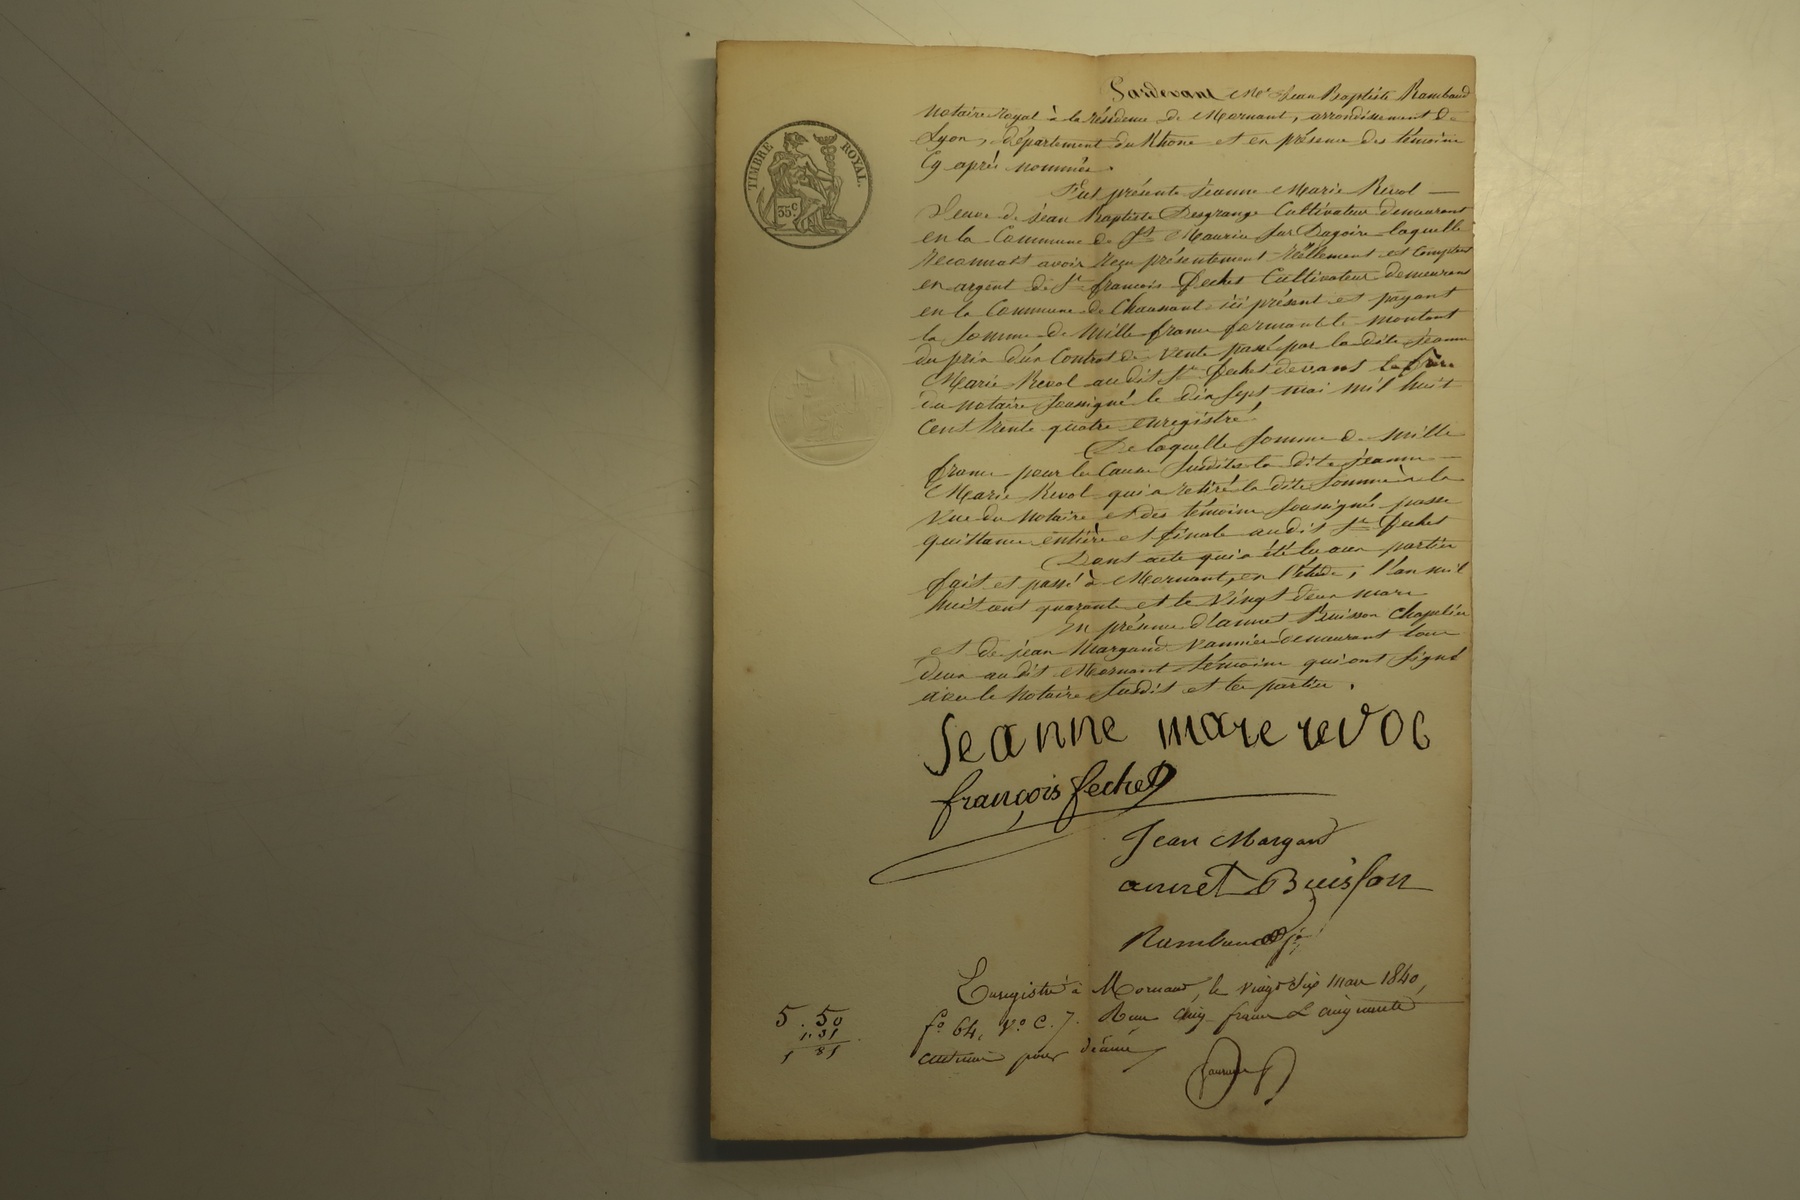 TIMBRE ROYAL.
35 c.
Pardevant Me Jean Baptiste Rambaud
Notaire Royal à la résidence de Mornant, arrondissement de
Lyon, département du Rhone et en présence des témoins
Cy après nommés.
Fut présente Jeanne Marie Revol
Veuve de Jean Baptiste Desgrange Cultivateur demeurant
en la Commune de St Maurice sur Dagoire laquelle
Reconnait avoir Reçu présentement Réellement et Comptant
en argent de Sr françois fechet Cultivateur demeurant
en la Commune de Chaussant ici présent et payant
la Somme de Mille francs formant le montant
du prix d'un Contrat de vente passé par la dite Jeanne
Marie Revol au dit Sr fechet devant le
du notaire soussigné le dix sept mai mil huit
cent trente quatre enregistré
De laquelle Somme de mille
francs pour les Causes susdites la dite jeanne
Marie Revol qui a retiré la dite Somme à la
Vue du Notaire et des témoins soussignés passe
quittance entière et finale au dit Sr fechet
Dont acte qui a été lu aux parties
fait et passé à Mornant, en l'étude, l'an mil
huit cent quarante et le vingt deux mars
En présence d'annet Buisson Chapelier
et de jean Margand Vannier demeurant tous
deux au dit Mornant témoins qui ont signé
avec le Notaire susdit et les parties.
Jeanne mare revol
françois fechet
Jean Margand
annet Buisson
Rambaud
Enregistré à Mornant, le vingt six mars 1840,
fo 64, Vo C. 7. Reçu cinq francs & cinquante
centimes pour décime
5. 50